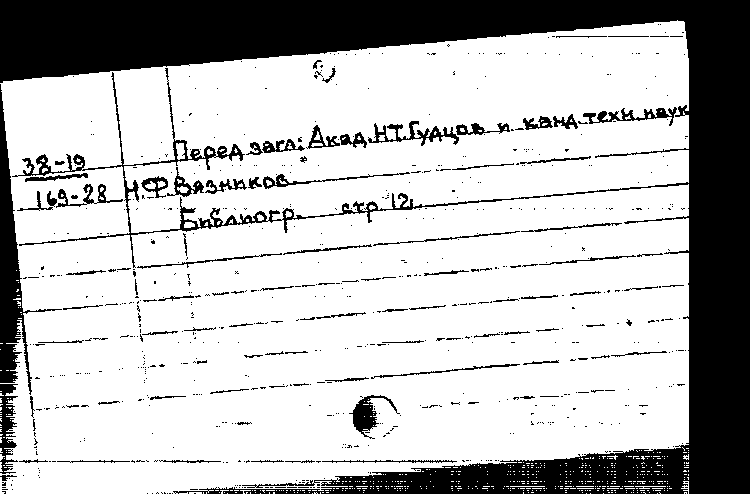 2
38-19 Перед загл: Акад. Н.Т. Гудцов и канд. техн. наук
169-28 Н.Ф. Вязников.
Библиогр. стр. 12.